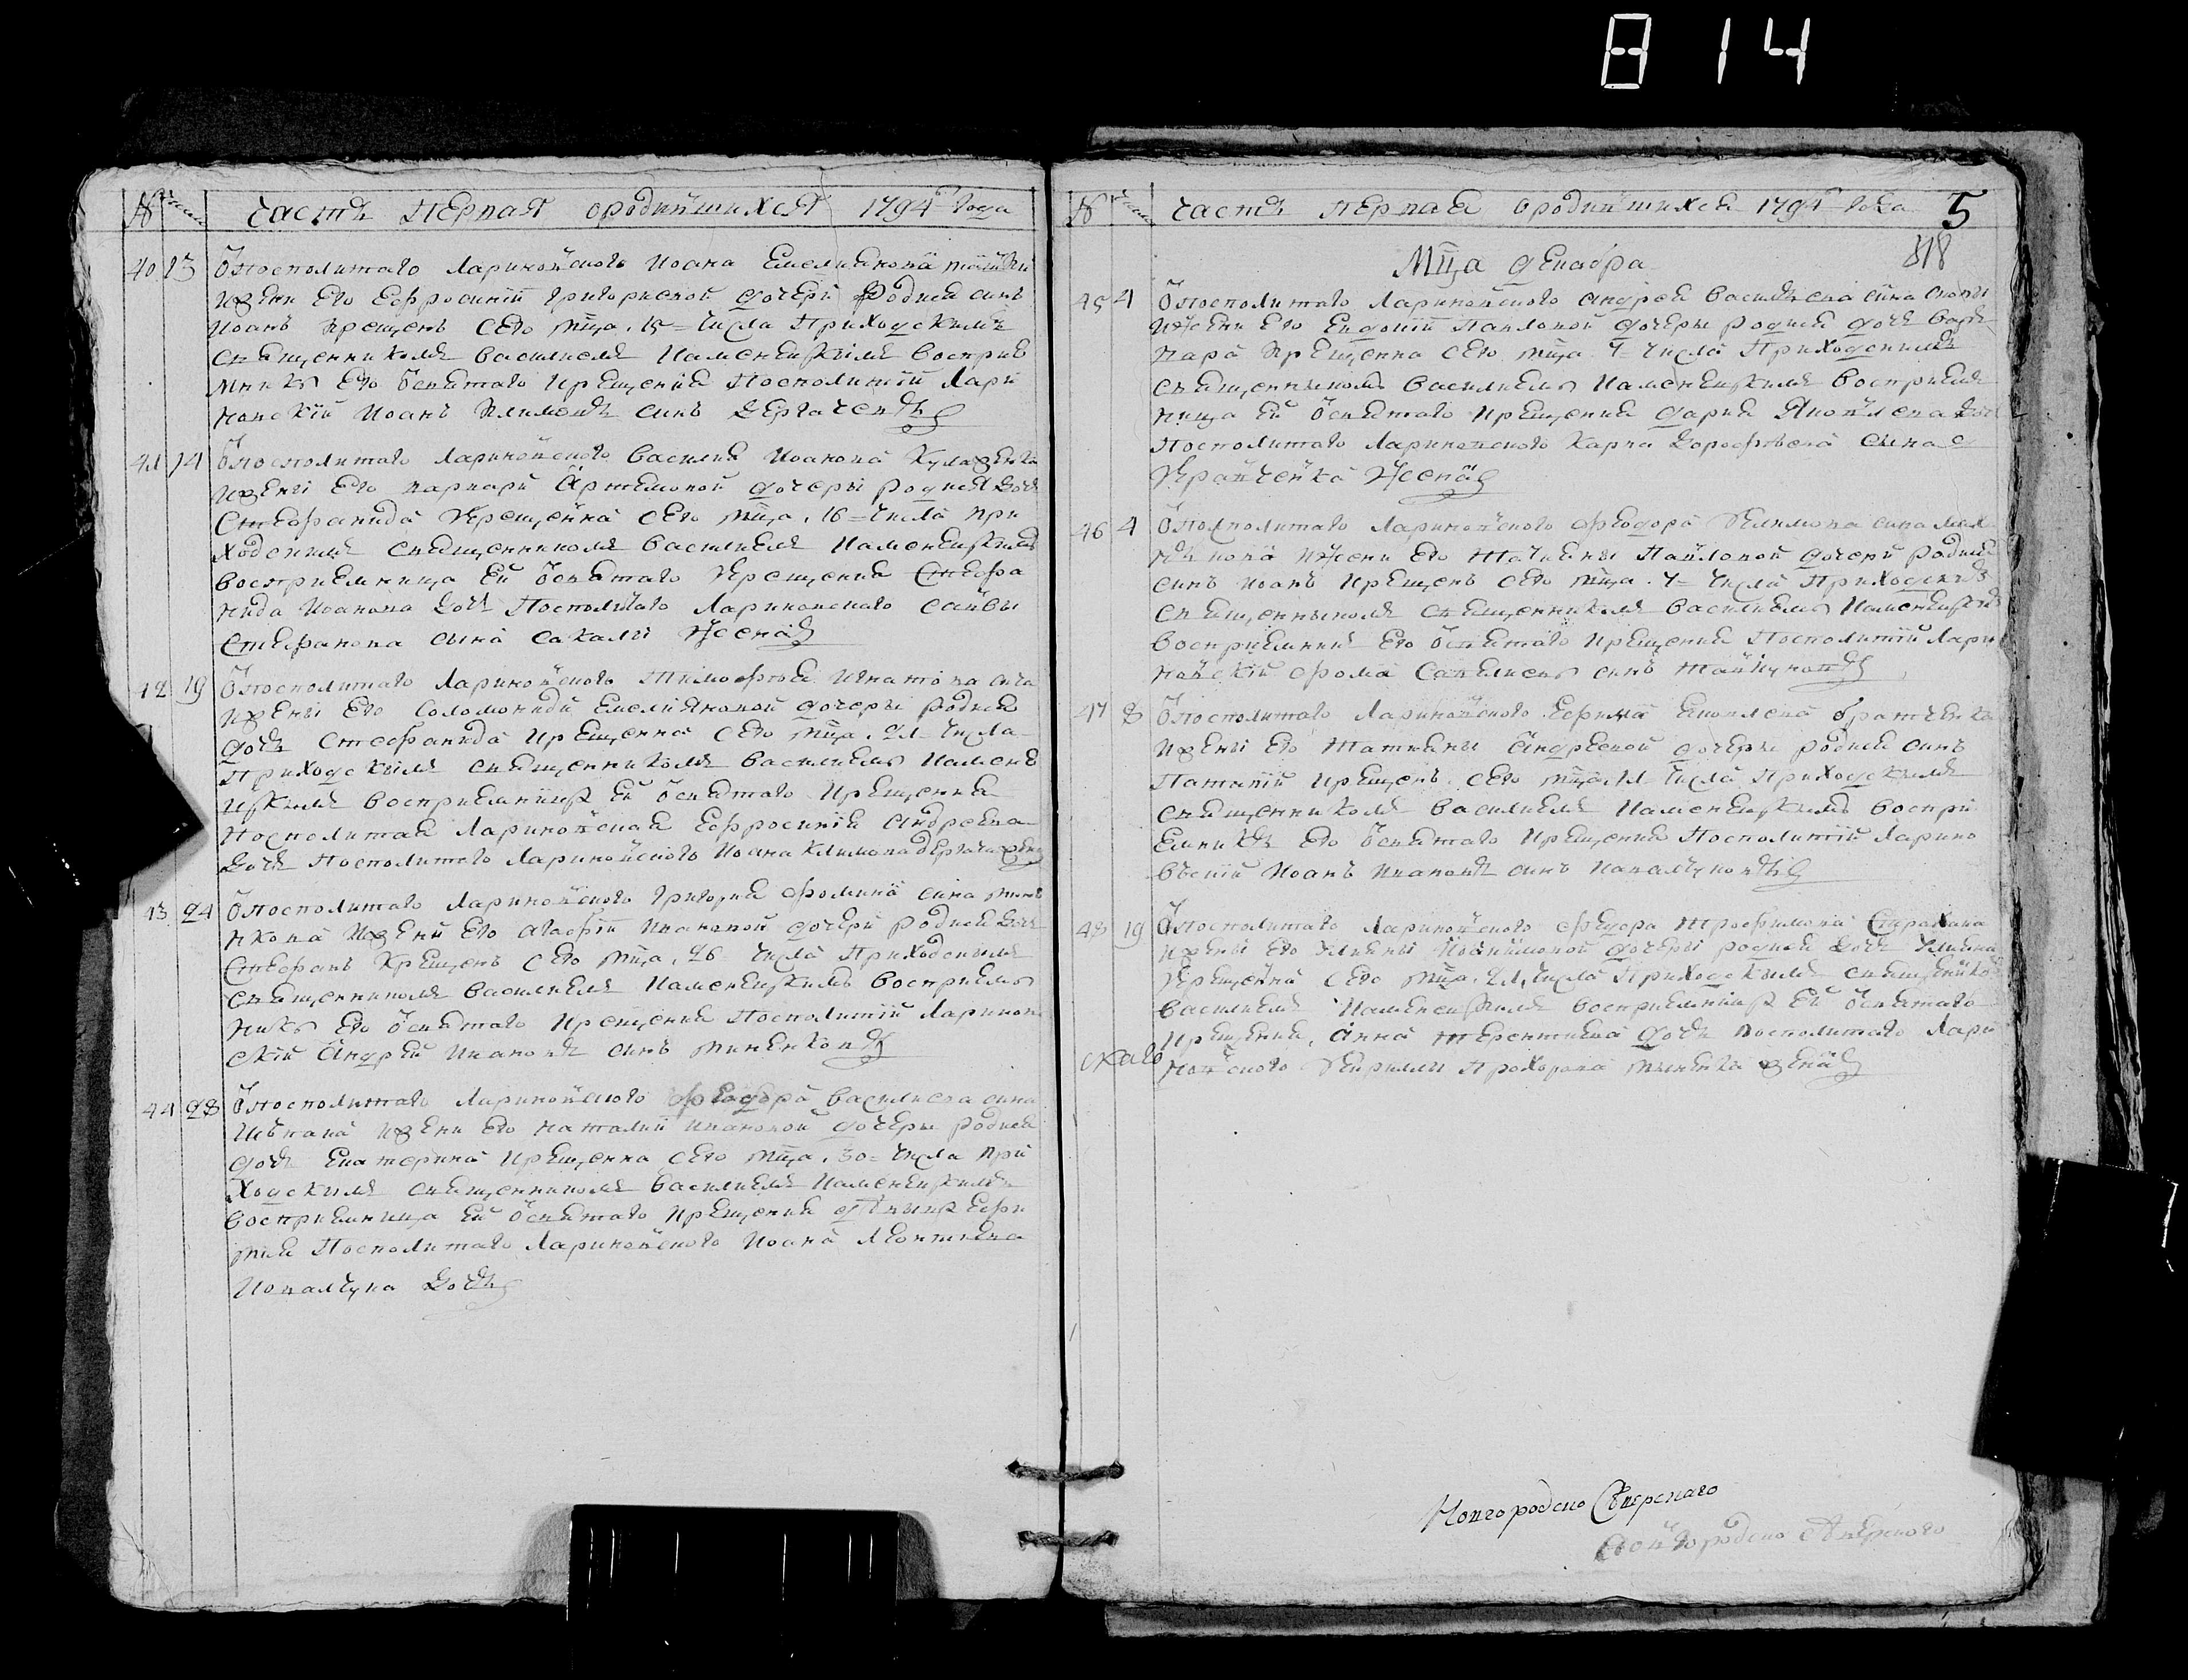 814
№ число часть первая ородившихся 1794 года
40 13 Упосполитаго Лариновского Иоана Емелианова
ижени Его Ефросинии григориевой дочери родися синъ
Иоанъ крещенъ сего мца. 15= числа Приходскимъ
священникомъ василиемъ Каменецкимъ восприе
мникъ Его ѿсвятаго крещения Посполитий Лари
новский Иоанъ Климовъ синъ
41 14 Упосполитаго Лариновского василия Иоанова
ижены Его варвари Артемовой дочеры родися дочь
Стефанида Крещенна сего мца. 16= числа при
ходскимъ священникомъ василиемъ Каменецкимъ
восприемница Ей ѿсвятаго Крещения Стефа
нида Иоанова дочь Посполитаго Лариновского савы
Стефанова сына сакалы жена
42 19 Упосполитаго Лариновского Тимофея Игнатова сина
ижены Его Соломониди Емелияновой дочеры родися
дочь Стефанида крещенна сего мца. 21 числа
Приходскимъ священникомъ василиемъ Камене
цкимъ восприемница Ей ѿсвятаго крещения
Посполитая Лариновская Ефросиния Андреева
дочь Посполитаго Лариновского Иоана Климова
43 24 Упосполитаго Лариновского григория Фомина сина мине
нкова ижени Его агафии Ивановой дочери родися
Стефанъ Крещенъ сего мца. 26 числа Приходскимъ
священникомъ василиемъ Каменецкимъ восприем
никъ Его ѿсвятаго крещения Посполитий Ларинов
ский Андрей Ивановъ синъ миненковъ
44 28 Упосполитаго Лариновского Феодора василиева сина
ижени Его наталии Ивановой дочеры родися
дочь Екатерина крещенна сего мца. 30= числа при
ходскимъ священникомъ василиемъ Каменецкимъ
восприемница Ей ѿсвятаго крещения девица Ефи
мия Посполитаго Лариновского Иоана Леонтиева
Ковалчука дочь
№ число часть первая ородившихся 1794 года 5
818
Мца декабра
45 4 Упосполитаго Лариновского андрея василиева сина
ижени Его Евдокии Павловой дочеры родися дочь варь
вара крещенна сего мца 7= числа Приходскимъ
священникомъ василиемъ Каменецкимъ восприем
ница Ей ѿсвятаго крещения дария Яковлева дочь
посполитаго Лариновского Карпа Дорофеева сина
Кравченка жена
46 4 Упосполитаго Лариновского феодора Климова сина
ижени Его Татианы Павловой дочери родися
синъ Иоанъ крещенъ сего мца. 7= числа Приходскимъ
священникомъ священникомъ василиемъ Каменецкимъ
восприемникъ Его ѿсвятаго крещения Посполитий Лари
новский фома Савелиевъ синъ
47 8 Упосполитаго Лариновского Ефима Яковлева братченка
ижены Его Татианы Андреевой дочеры родися синъ
Патапий крещенъ сего мца. 11 числа Приходскимъ
священникомъ василиемъ Каменецкимъ воспри
емникъ Его ѿсвятаго крещения Посполитий Ларино
вский Иоанъ Ивановъ синъ Кавалчуковъ
48 19 Упосполитаго Лариновского феодора трофимова
ижены Его Улияны дочеры родися дочь Улияна
Крещенна сего мца. 21, числа Приходскимъ священико
василиемъ Каменецкимъ восприемница Ей ѿсвятаго
крещения, анна терентиева дочь посполитаго Лари
новского Кирилы Прохорова миненка жена
скаго
Новгородско Северскаго
Новгородско Северского